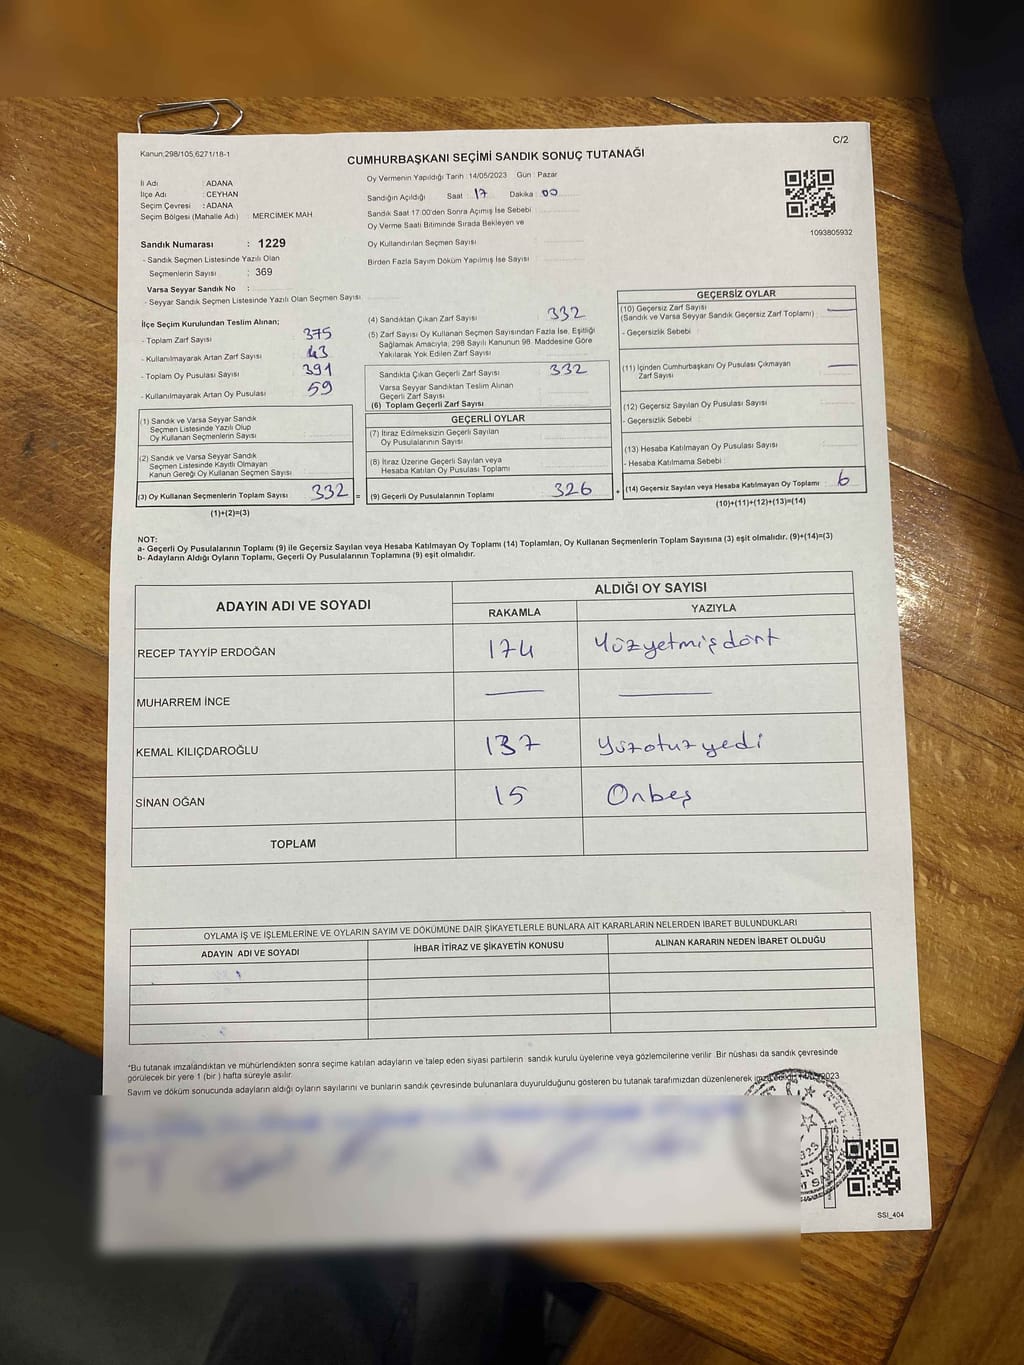 C/2
Kanun:298/105,6271/18-1
CUMHURBAŞKANI SEÇİMİ SANDIK SONUÇ TUTANAĞI
İl Adı : ADANA
İlçe Adı : CEYHAN
Seçim Çevresi : ADANA
Seçim Bölgesi (Mahalle Adı) : MERCİMEK MAH
Sandık Numarası : 1229
- Sandık Seçmen Listesinde Yazılı Olan
Seçmenlerin Sayısı : 369
Varsa Seyyar Sandık No :
- Seyyar Sandık Seçmen Listesinde Yazılı Olan Seçmen Sayısı
Oy Vermenin Yapıldığı Tarih :14/05/2023 Gün : Pazar
Sandığın Açıldığı Saat : 17 Dakika : 00
Sandık Saat 17:00'den Sonra Açımış İse Sebebi :
Oy Verme Saati Bitiminde Sırada Bekleyen ve
Oy Kullandırılan Seçmen Sayısı
Birden Fazla Sayım Döküm Yapılmış İse Sayısı
1093805932
İlçe Seçim Kurulundan Teslim Alınan;
- Toplam Zarf Sayısı : 375
- Kullanılmayarak Artan Zarf Sayısı : 43
- Toplam Oy Pusulası Sayısı : 391
- Kullanılmayarak Artan Oy Pusulası : 59
(1) Sandık ve Varsa Seyyar Sandık
Seçmen Listesinde Yazılı Olup
Oy Kullanan Seçmenlerin Sayısı :
(2) Sandık ve Varsa Seyyar Sandık
Seçmen Listesinde Kayıtlı Olmayan
Kanun Gereği Oy Kullanan Seçmen Sayısı :
(3) Oy Kullanan Seçmenlerin Toplam Sayısı : 332 =
(1)+(2)=(3)
(4) Sandıktan Çıkan Zarf Sayısı : 332
(5) Zarf Sayısı Oy Kullanan Seçmen Sayısından Fazla İse, Eşitliği
Sağlamak Amacıyla; 298 Sayılı Kanunun 98. Maddesine Göre
Yakılarak Yok Edilen Zarf Sayısı :
Sandıkta Çıkan Geçerli Zarf Sayısı : 332
Varsa Seyyar Sandıktan Teslim Alınan
Geçerli Zarf Sayısı :
(6) Toplam Geçerli Zarf Sayısı
GEÇERLİ OYLAR
(7) İtiraz Edilmeksizin Geçerli Sayılan
Oy Pusulalarının Sayısı :
(8) İtiraz Üzerine Geçerli Sayılan veya
Hesaba Katılan Oy Pusulası Toplamı :
(9) Geçerli Oy Pusulalarının Toplamı : 326 +
GEÇERSİZ OYLAR
(10) Geçersiz Zarf Sayısı
(Sandık ve Varsa Seyyar Sandık Geçersiz Zarf Toplamı) : —
- Geçersizlik Sebebi :
(11) İçinden Cumhurbaşkanı Oy Pusulası Çıkmayan
Zarf Sayısı : —
(12) Geçersiz Sayılan Oy Pusulası Sayısı :
- Geçersizlik Sebebi :
(13) Hesaba Katılmayan Oy Pusulası Sayısı :
- Hesaba Katılmama Sebebi :
(14) Geçersiz Sayılan veya Hesaba Katılmayan Oy Toplamı : 6
(10)+(11)+(12)+(13)=(14)
NOT:
a- Geçerli Oy Pusulalarının Toplamı (9) ile Geçersiz Sayılan veya Hesaba Katılmayan Oy Toplamı (14) Toplamları, Oy Kullanan Seçmenlerin Toplam Sayısına (3) eşit olmalıdır. (9)+(14)=(3)
b- Adayların Aldığı Oyların Toplamı, Geçerli Oy Pusulalarının Toplamına (9) eşit olmalıdır.
ADAYIN ADI VE SOYADI ALDIĞI OY SAYISI
RAKAMLA YAZIYLA
RECEP TAYYİP ERDOĞAN 174 Yüzyetmişdört
MUHARREM İNCE — —
KEMAL KILIÇDAROĞLU 137 Yüzotuzyedi
SİNAN OĞAN 15 Onbeş
TOPLAM
OYLAMA İŞ VE İŞLEMLERİNE VE OYLARIN SAYIM VE DÖKÜMÜNE DAİR ŞİKAYETLERLE BUNLARA AİT KARARLARIN NELERDEN İBARET BULUNDUKLARI
ADAYIN ADI VE SOYADI İHBAR İTİRAZ VE ŞİKAYETİN KONUSU ALINAN KARARIN NEDEN İBARET OLDUĞU
*Bu tutanak imzalandıktan ve mühürlendikten sonra seçime katılan adayların ve talep eden siyasi partilerin sandık kurulu üyelerine veya gözlemcilerine verilir. Bir nüshası da sandık çevresinde
görülecek bir yere 1 (bir ) hafta süreyle asılır.
Sayım ve döküm sonucunda adayların aldığı oyların sayılarını ve bunların sandık çevresinde bulunanlara duyurulduğunu gösteren bu tutanak tarafımızdan düzenlenerek
SSI_404